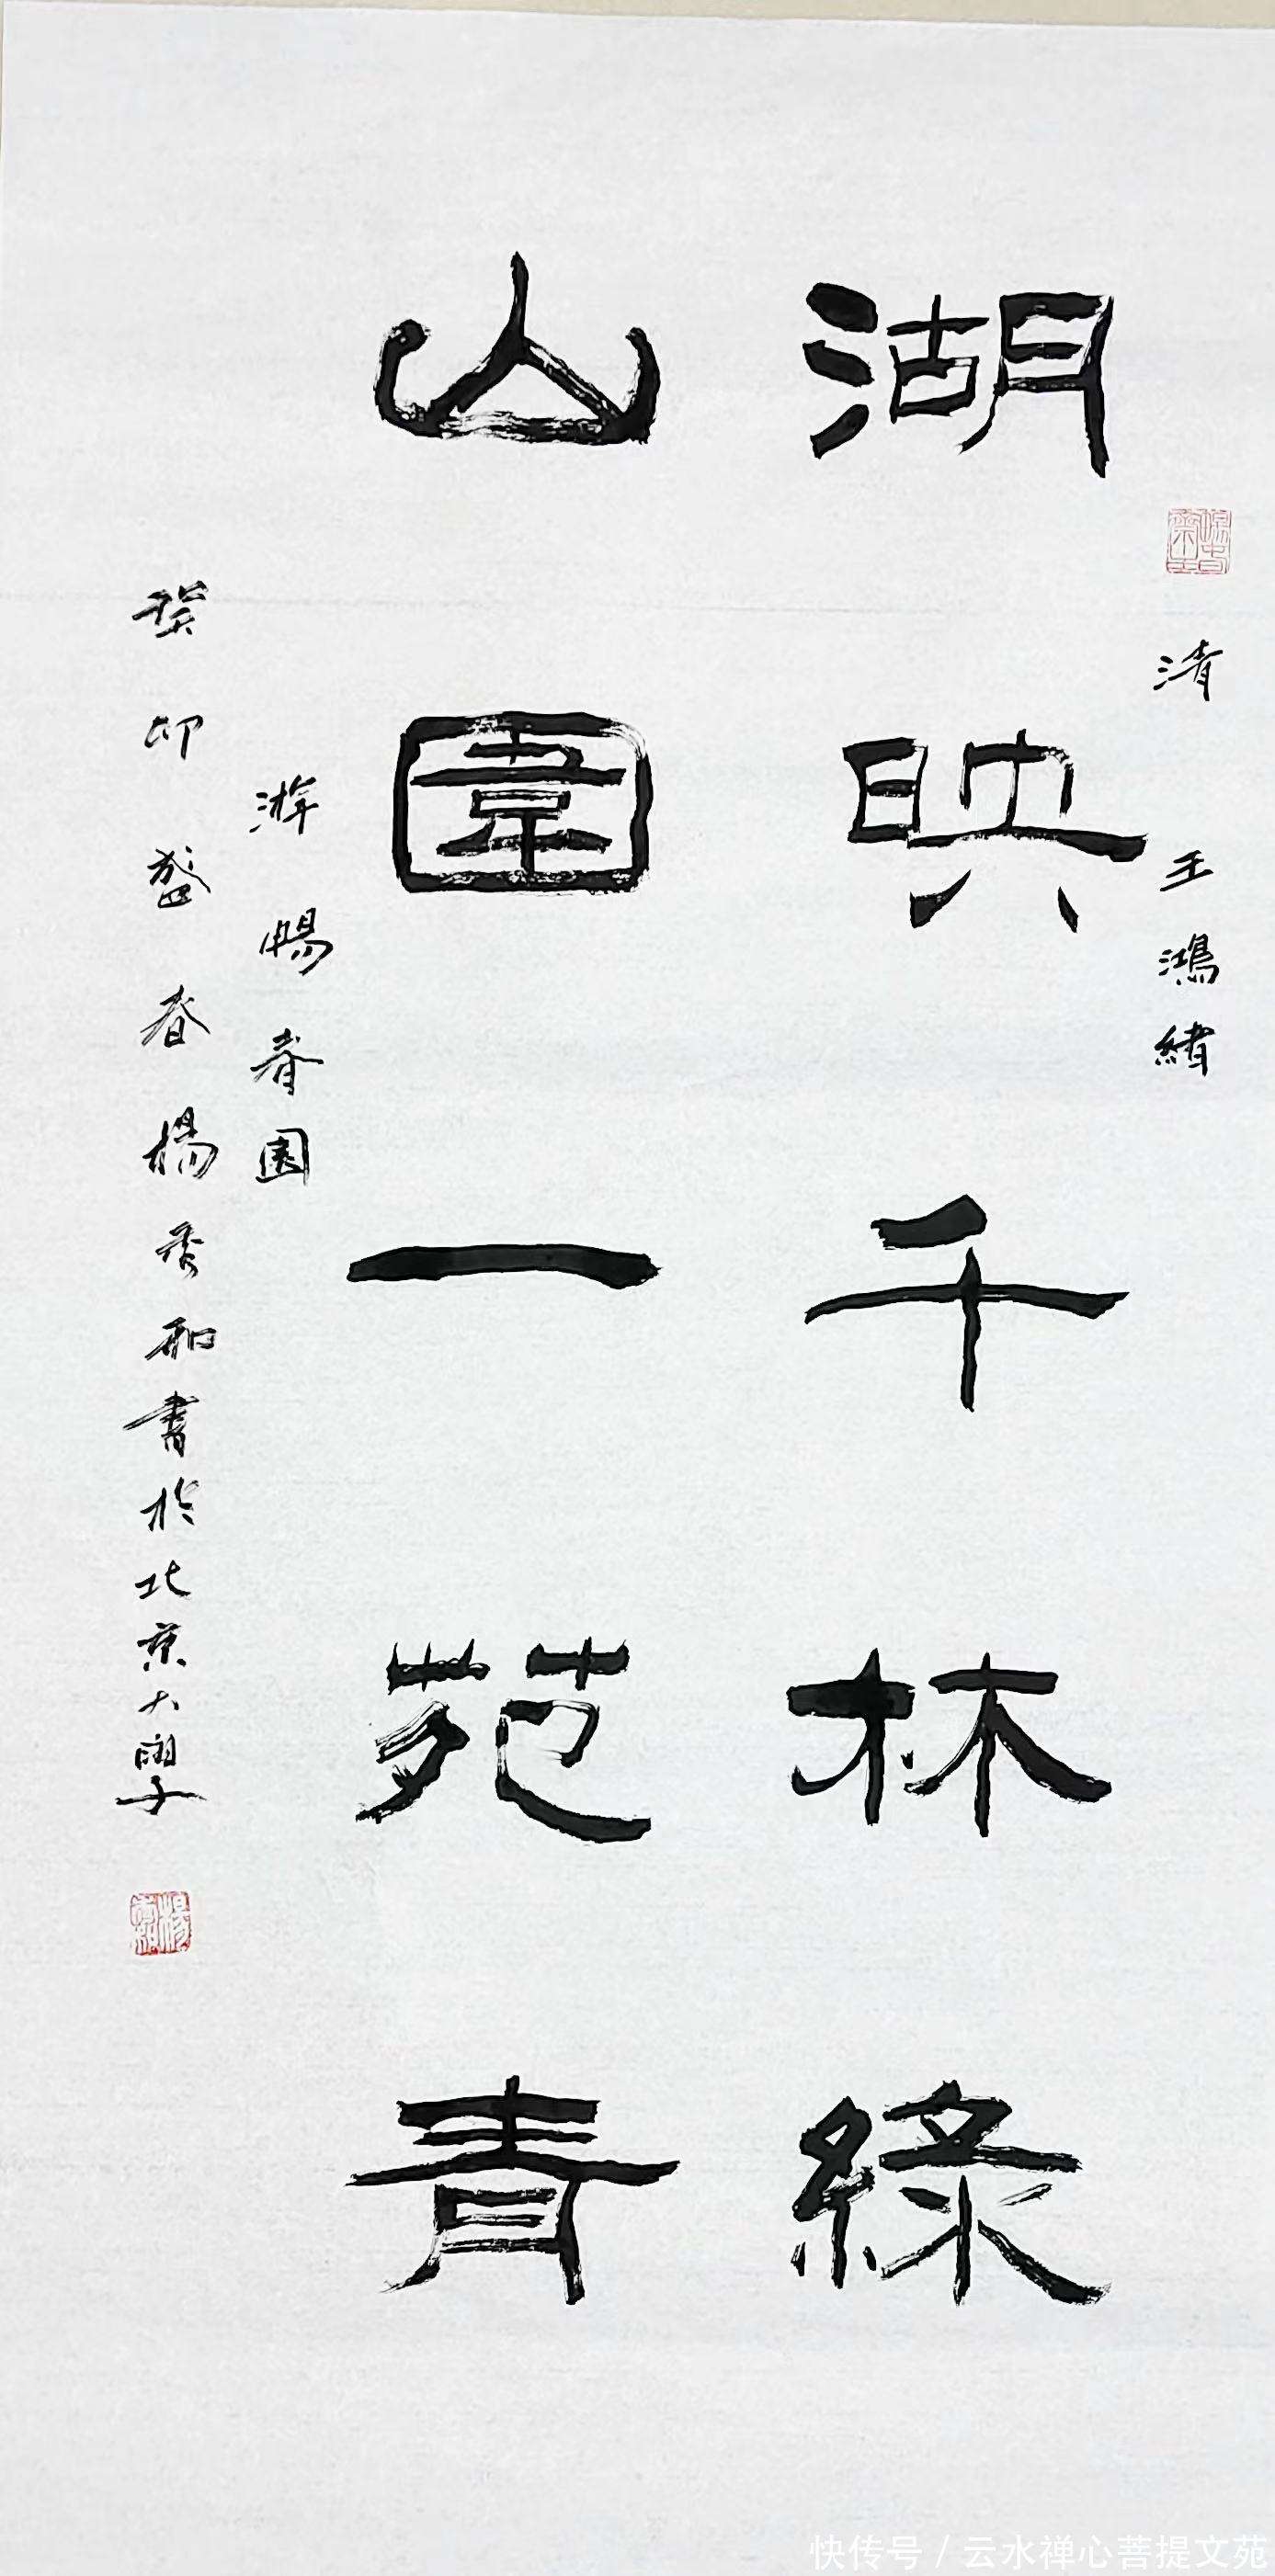 湖映千林綠
山圍一苑青
清 王鴻緒
游暢春園
癸卯盛春楊秀和書於北京大學
快传号 / 云水禅心菩提文苑